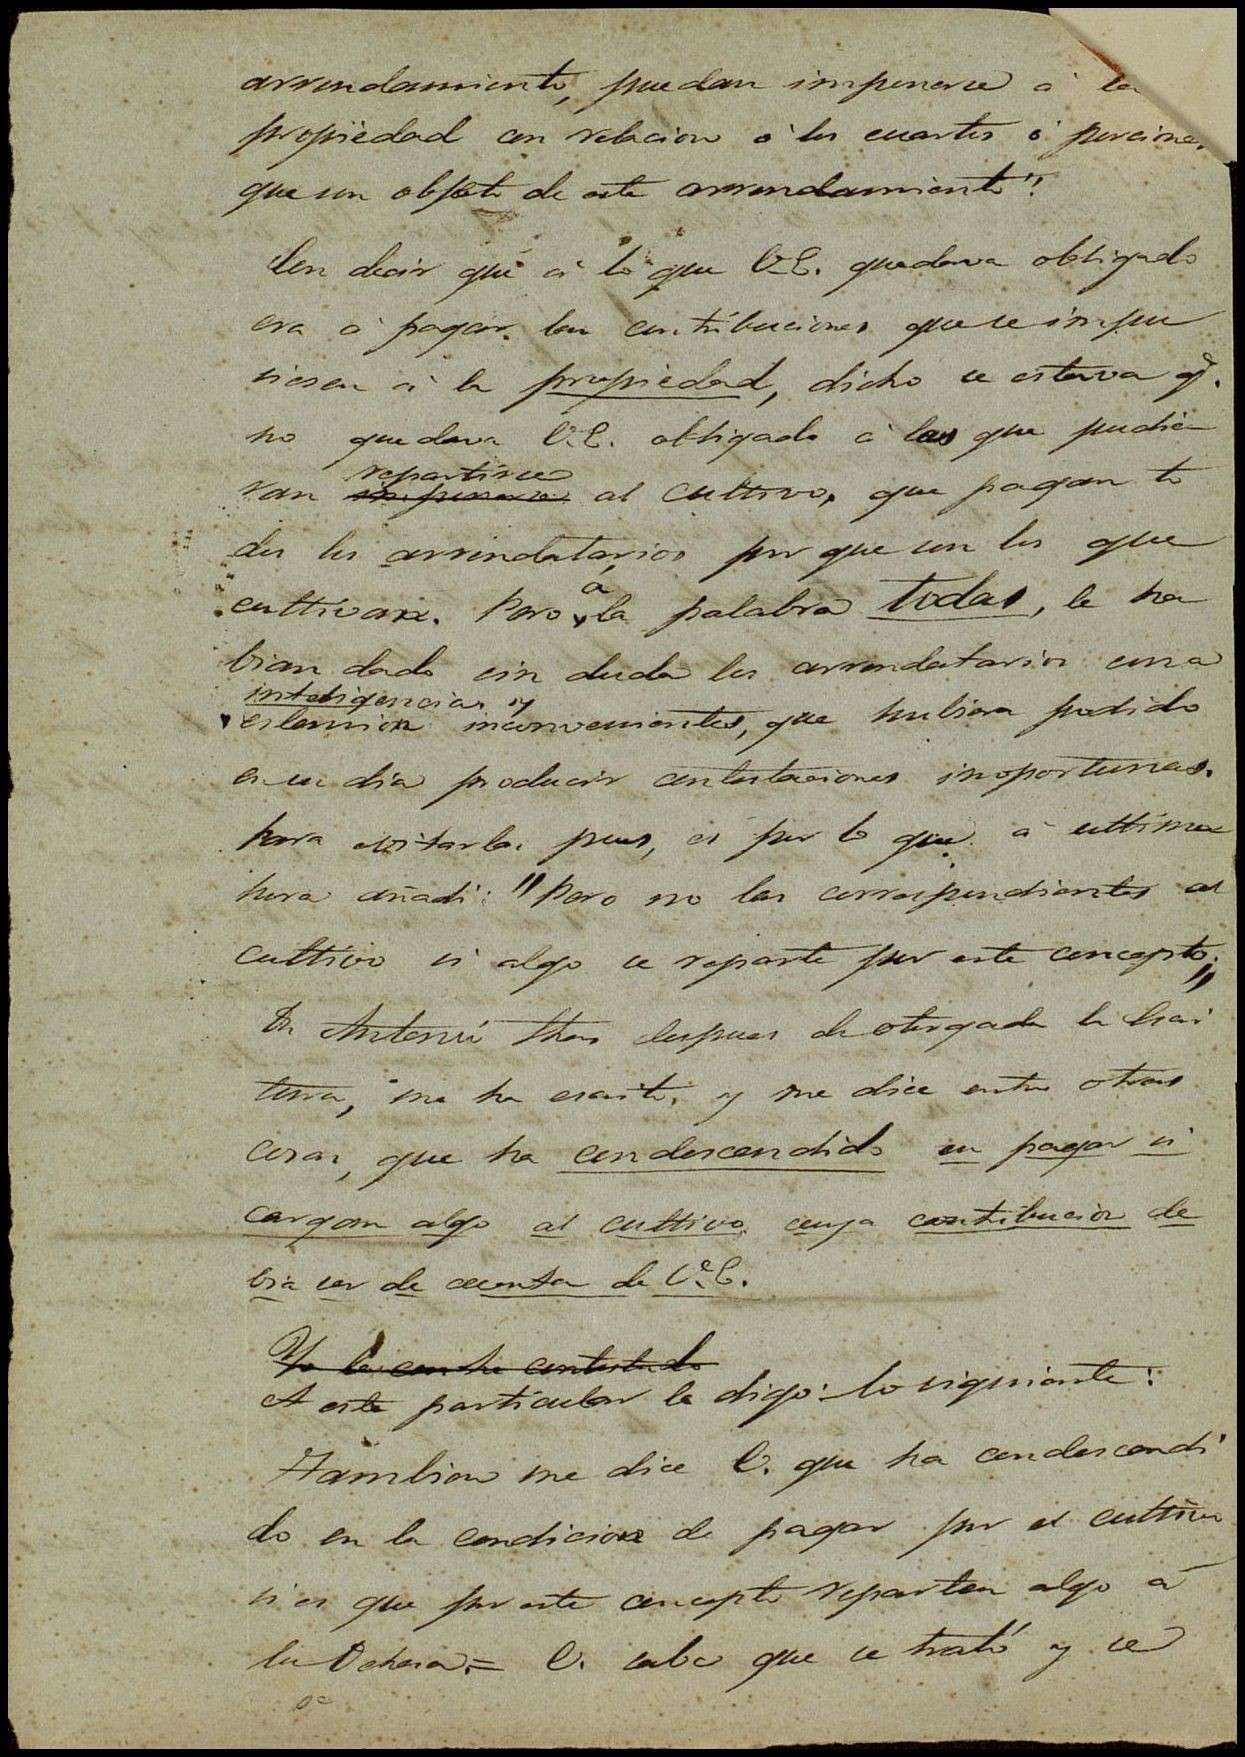 arrendamiento, puedan imponerse á la
propiedad con relacion á los cuartos ó porciones
que son objeto de este arrendamiento"
decir que á lo que V.E. quedava obligado
era á pagar las contribuciones que se impu
siesen á la propiedad, dicho se estava q.e
no quedava V.E. obligado á las que pudie
ran repartirse al cultivo, que pagan to
dos los arrendatarios por que son los que
cultivan. Pero á la palabra todas, le ha
bian dado sin duda los arrendatarios una
inteligencia y
estension inconvenientes, que hubiera podido
en su dia producir contestaciones inoportunas.
Para evitarlas pues, es por lo que á ultima
hora añadi: "Pero no las correspondientes al
cultivo si algo se reparte por este concepto."
Dn Antonio despues de otorgada la Escri
tura, me ha escrito, y me dice entre otras
cosas, que ha condescendido en pagar si
cargan algo al cultivo cuya contribucion de
bia ser de cuenta de V.E.
Yo le he contestado
A este particular le digo: lo siguiente:
Tambien me dice V. que ha condescendi
do en la condicion de pagar por el cultivo
si es que por este concepto reparten algo á
la Dehesa = V. sabe que se trató y se